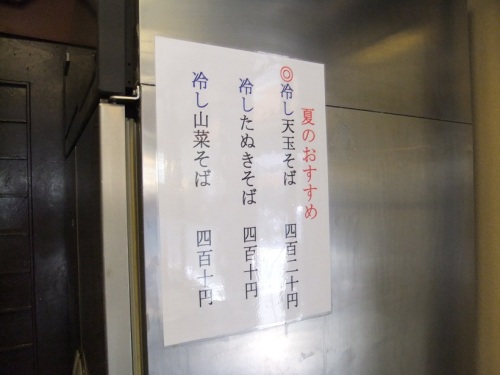 夏のおすすめ
◎冷し天玉そば 四百二十円
冷したぬきそば 四百十円
冷し山菜そば 四百十円